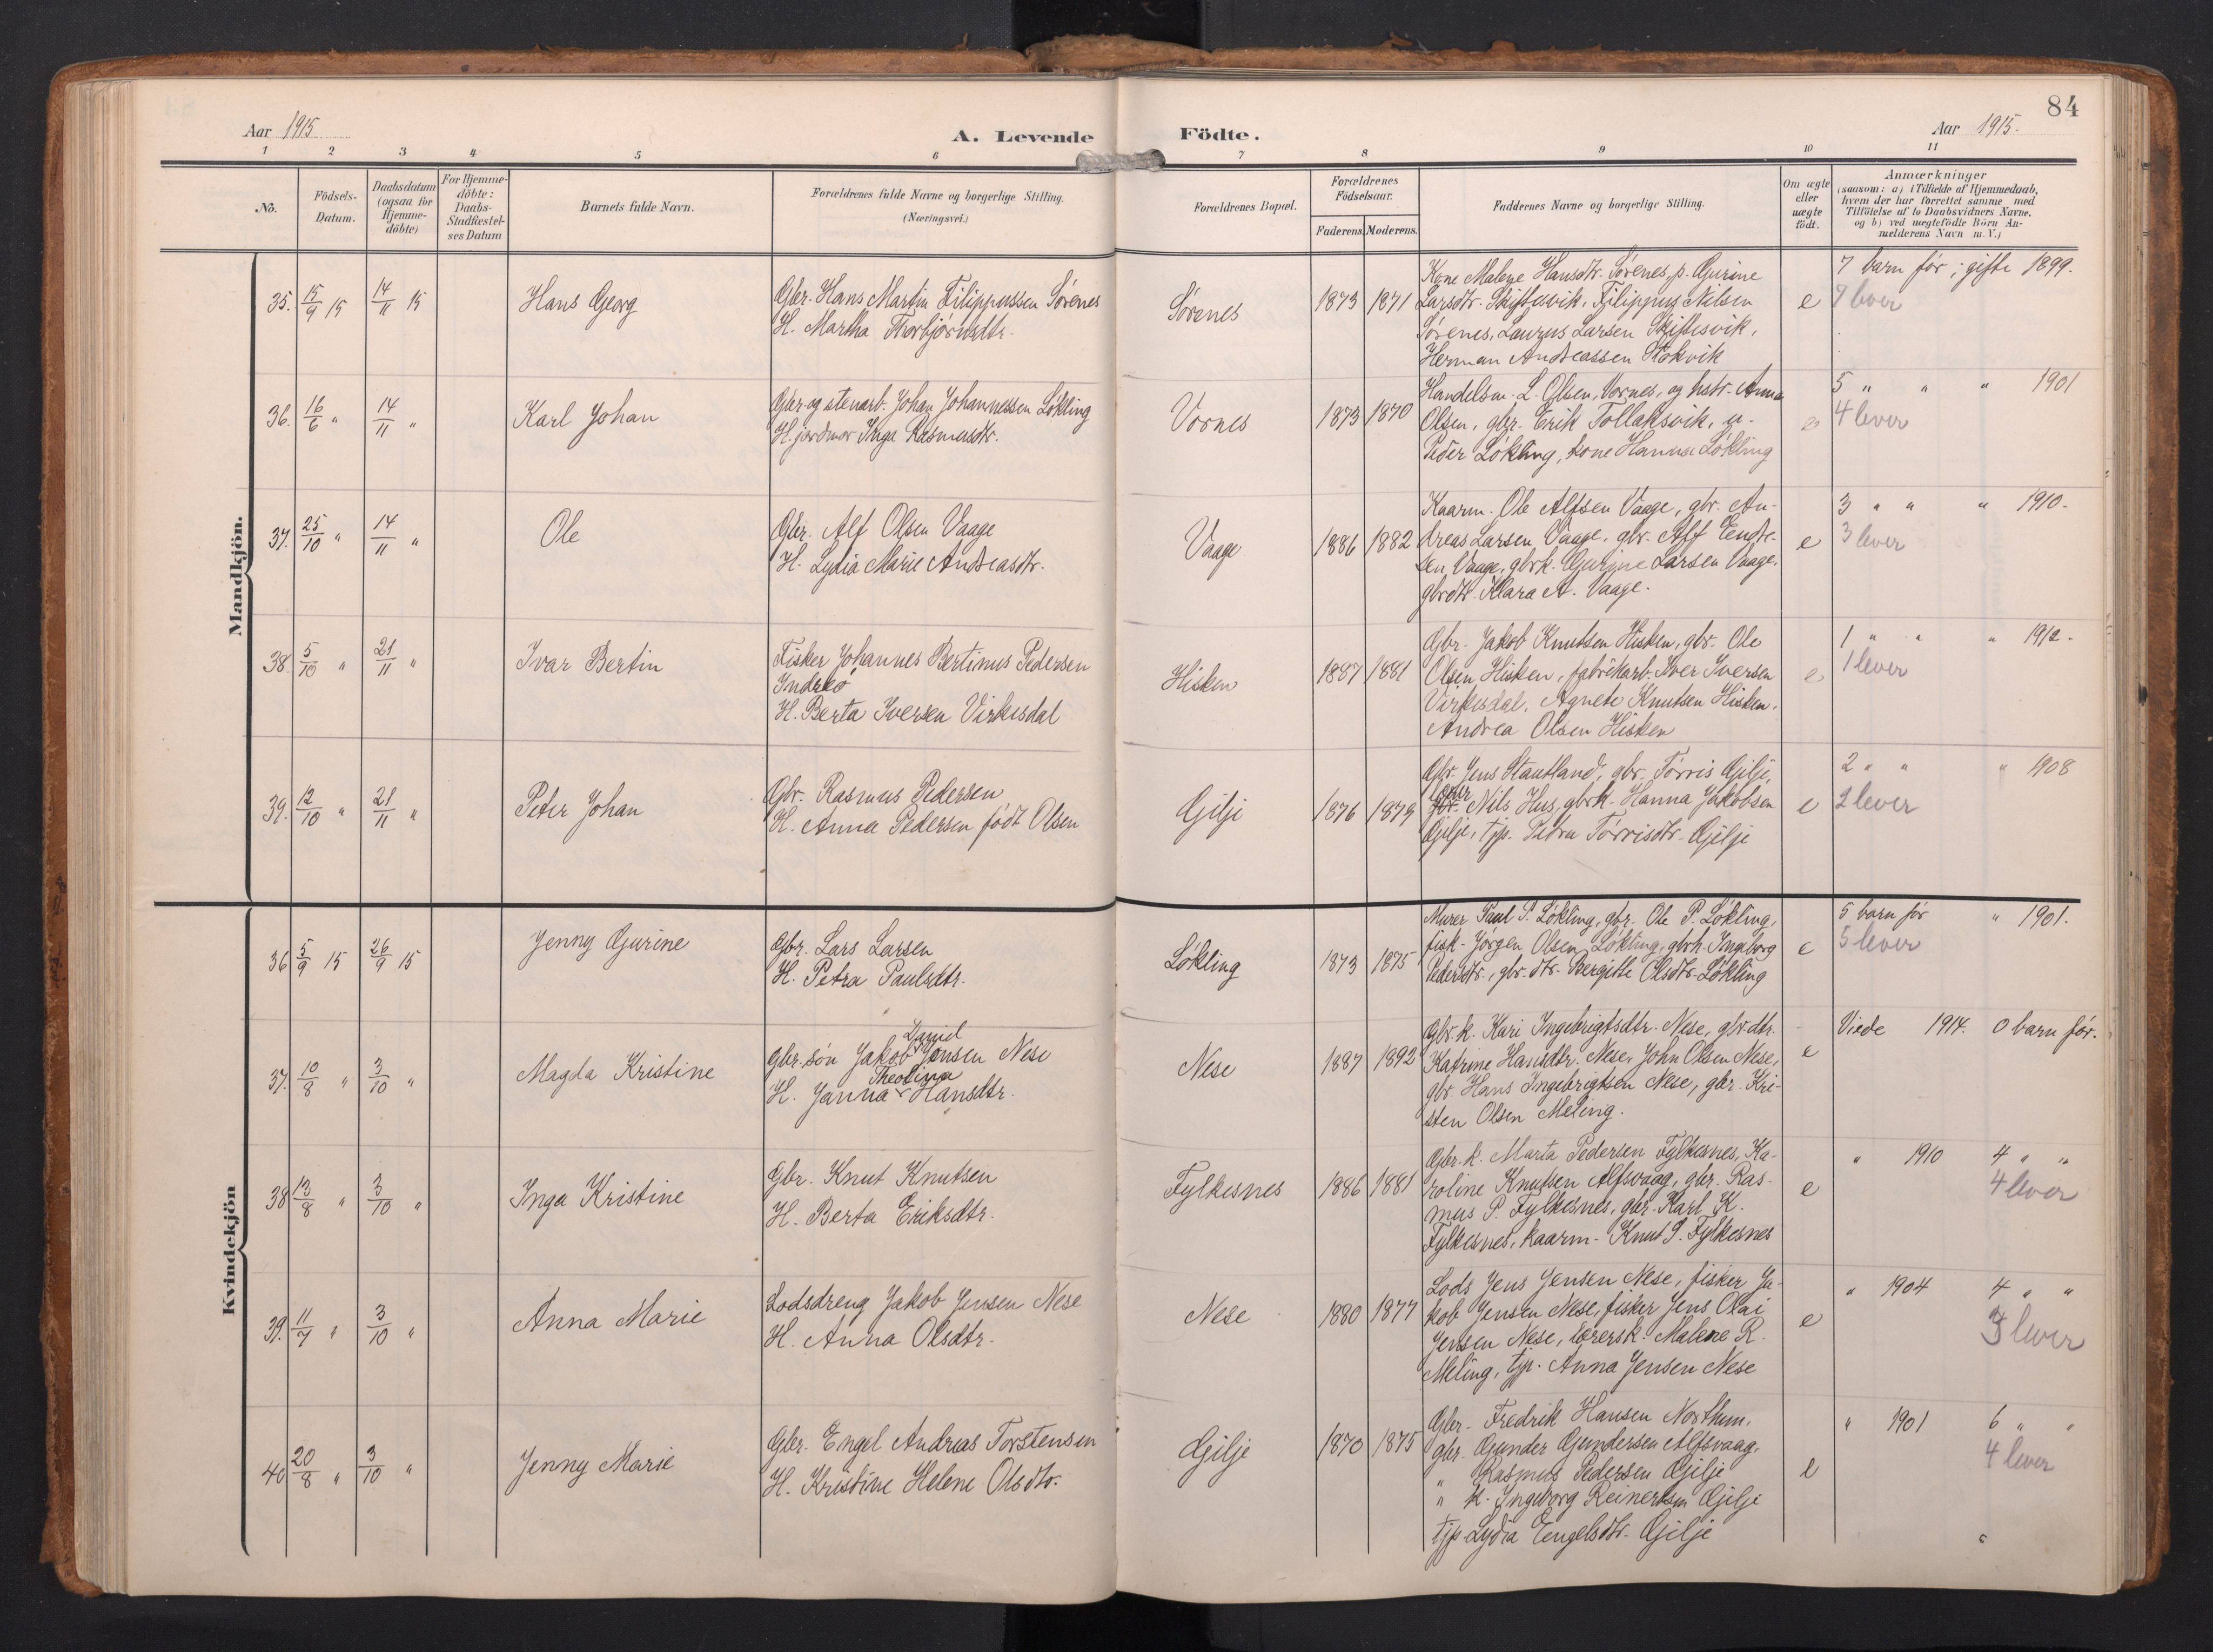 84
Aar 1915
A. Levende Födte.
Aar 1915.
1 2 3 4 5 6 7 8 9 10 11
No.
Födsels-
Datum.
Daabsdatum
(ogsaa for
Hjemme-
döbte)
For Hjemme-
döbte:
Daabs-
Stadfæstel-
ses Datum
Barnets fulde Navn.
Forældrenes fulde Navne og borgerlige Stilling.
(Næringsvei.)
Forældrenes Bopæl.
Forældrenes
Födselsaar.
Faderens. Moderens.
Faddernes Navne og borgerlige Stilling.
Om ægte
eller
uægte
födt.
Anmærkninger
(saasom: a) i Tilfælde af Hjemmedaab,
hvem der har forrettet samme med
Tilföielse af to Daabsvidners Navne,
og b) ved uægtefödte Börn An-
melderens Navn m. V.)
Mandkjön.
35. 15/9 15 14/11 15
Hans Georg
Gbr. Hans Martin Filippussen Sørenes
H. Martha Thorbjørnsdtr.
Sørenes
1873 1871
Kone Malene Hansdtr. Sørenes, p. Gurine
Larsdtr. Skiftesvik, Filippus Nilsen
Sørenes, Laurus Larsen Skiftesvik,
Herman Andreassen Stokvik
e
7 barn før; gifte 1899.
lever
36. 16/6 " 14/11 "
Karl Johan
Gbr. og stenarb. Johan Johannessen Løkling
H. jordmor Inga Rasmusdtr.
Vornes
1873 1870
Handelsm. L. Olsen, Vornes, og hstr. Anna
Olsen, gbr. Erik Tollaksvik, u-
Peder Løkling, kone Hanna Løkling
e
5 " " " 1901
4 lever
37. 25/10 " 14/11 "
Ole
Gbr. Alf Olsen Vaage
H. Lydia Marie Andreasdtr.
Vaage
1886 1882
Kaarm. Ole Alfsen Vaage, gbr. An-
dreas Larsen Vaage, gbr. Alf Endre-
sen Vaage, gbrk. Gurine Larsen Vaage,
gbrdtr. Klara A. Vaage.
e
3 " " " 1910.
3 lever
38. 5/10 " 21/11 "
Ivar Bertin
Fisker Johannes Bertinus Pedersen
Indreø
H. Berta Iversen Virkesdal
Hisken
1887 1881
Gbr. Jakob Knutsen Hisken, gbr. Ole
Olsen Hisken, fabrikarb. Iver Iversen
Virkesdal, Agnete Knutsen Hisken,
Andrea Olsen Hisken
e
1 " " " 1912.
1 lever
39. 12/10 " 21/11 "
Peter Johan
Gbr. Rasmus Pedersen
H. Anna Pedersen født Olsen
Gilje
1876 1879
Gbr. Jens Stautland, gbr. Tørris Gilje,
Nils Hus, gbrk. Hanna Jakobsen
Gilje, tjp. Petra Tørrisdtr. Gilje
e
2 " " " 1908
2 lever
Kvindekjön
36 5/9 15 26/9 15
Jenny Gurine
Gbr. Lars Larsen
H. Petra Paulsdtr.
Løkling
1873 1875
Murer Paul P. Løkling, gbr. Ole P. Løkling,
fisk. Jørgen Olsen Løkling, gbrk. Ingeborg
Pedersdtr., gbr. dtr. Bergitte Olsdtr. Løkling
e
5 barn før " 1901.
5 lever
37. 10/8 " 3/10 "
Magda Kristine
David
Gbr. søn Jakob Jensen Nese
Theolina
H. Janna Hansdtr.
Nese
1887 1892
Gbr. k. Kari Ingebrigtsdtr. Nese, gbrdtr.
Katrine Hansdtr. Nese, John Olsen Nese,
gbr. Hans Ingebrigtsen Nese, gbr. Kri-
sten Olsen Meling.
e
Viede 1914. 0 barn før.
38 13/8 " 3/10 "
Inga Kristine
Gbr. Knut Knutsen
H. Berta Eriksdtr.
Fylkesnes
1886 1881
Gbr. k. Marta Pedersen Fylkesnes, Ka-
roline Knutsen Alfsvaag, gbr. Ras-
mus P. Fylkesnes, gbr. Karl K.
Fylkesnes, kaarm. Knut P. Fylkesnes
e
" 1910 4 " "
4 lever
39. 11/7 " 3/10 "
Anna Marie
Lodsdreng Jakob Jensen Nese
H. Anna Olsdtr.
Nese
1880 1877
Lods Jens Jensen Nese, fisker Ja-
kob Jensen Nese, fisker Jens Olai
Jensen Nese, lærersk. Malene R.
Meling, tjp. Anna Jensen Nese
e
" 1904 4 " "
3 lever
40 20/8 " 3/10 "
Jenny Marie
Gbr. Engel Andreas Torstensen
H. Kristine Helene Olsdtr.
Gilje
1870 1875
Gbr. Fredrik Hansen Northun,
gbr. Gunder Gundersen Alfsvaag,
" Rasmus Pedersen Gilje
" k. Ingeborg Reinertsen Gilje
tjp Lydia Engelsdtr. Gilje
e
" 1901 6 " "
4 lever